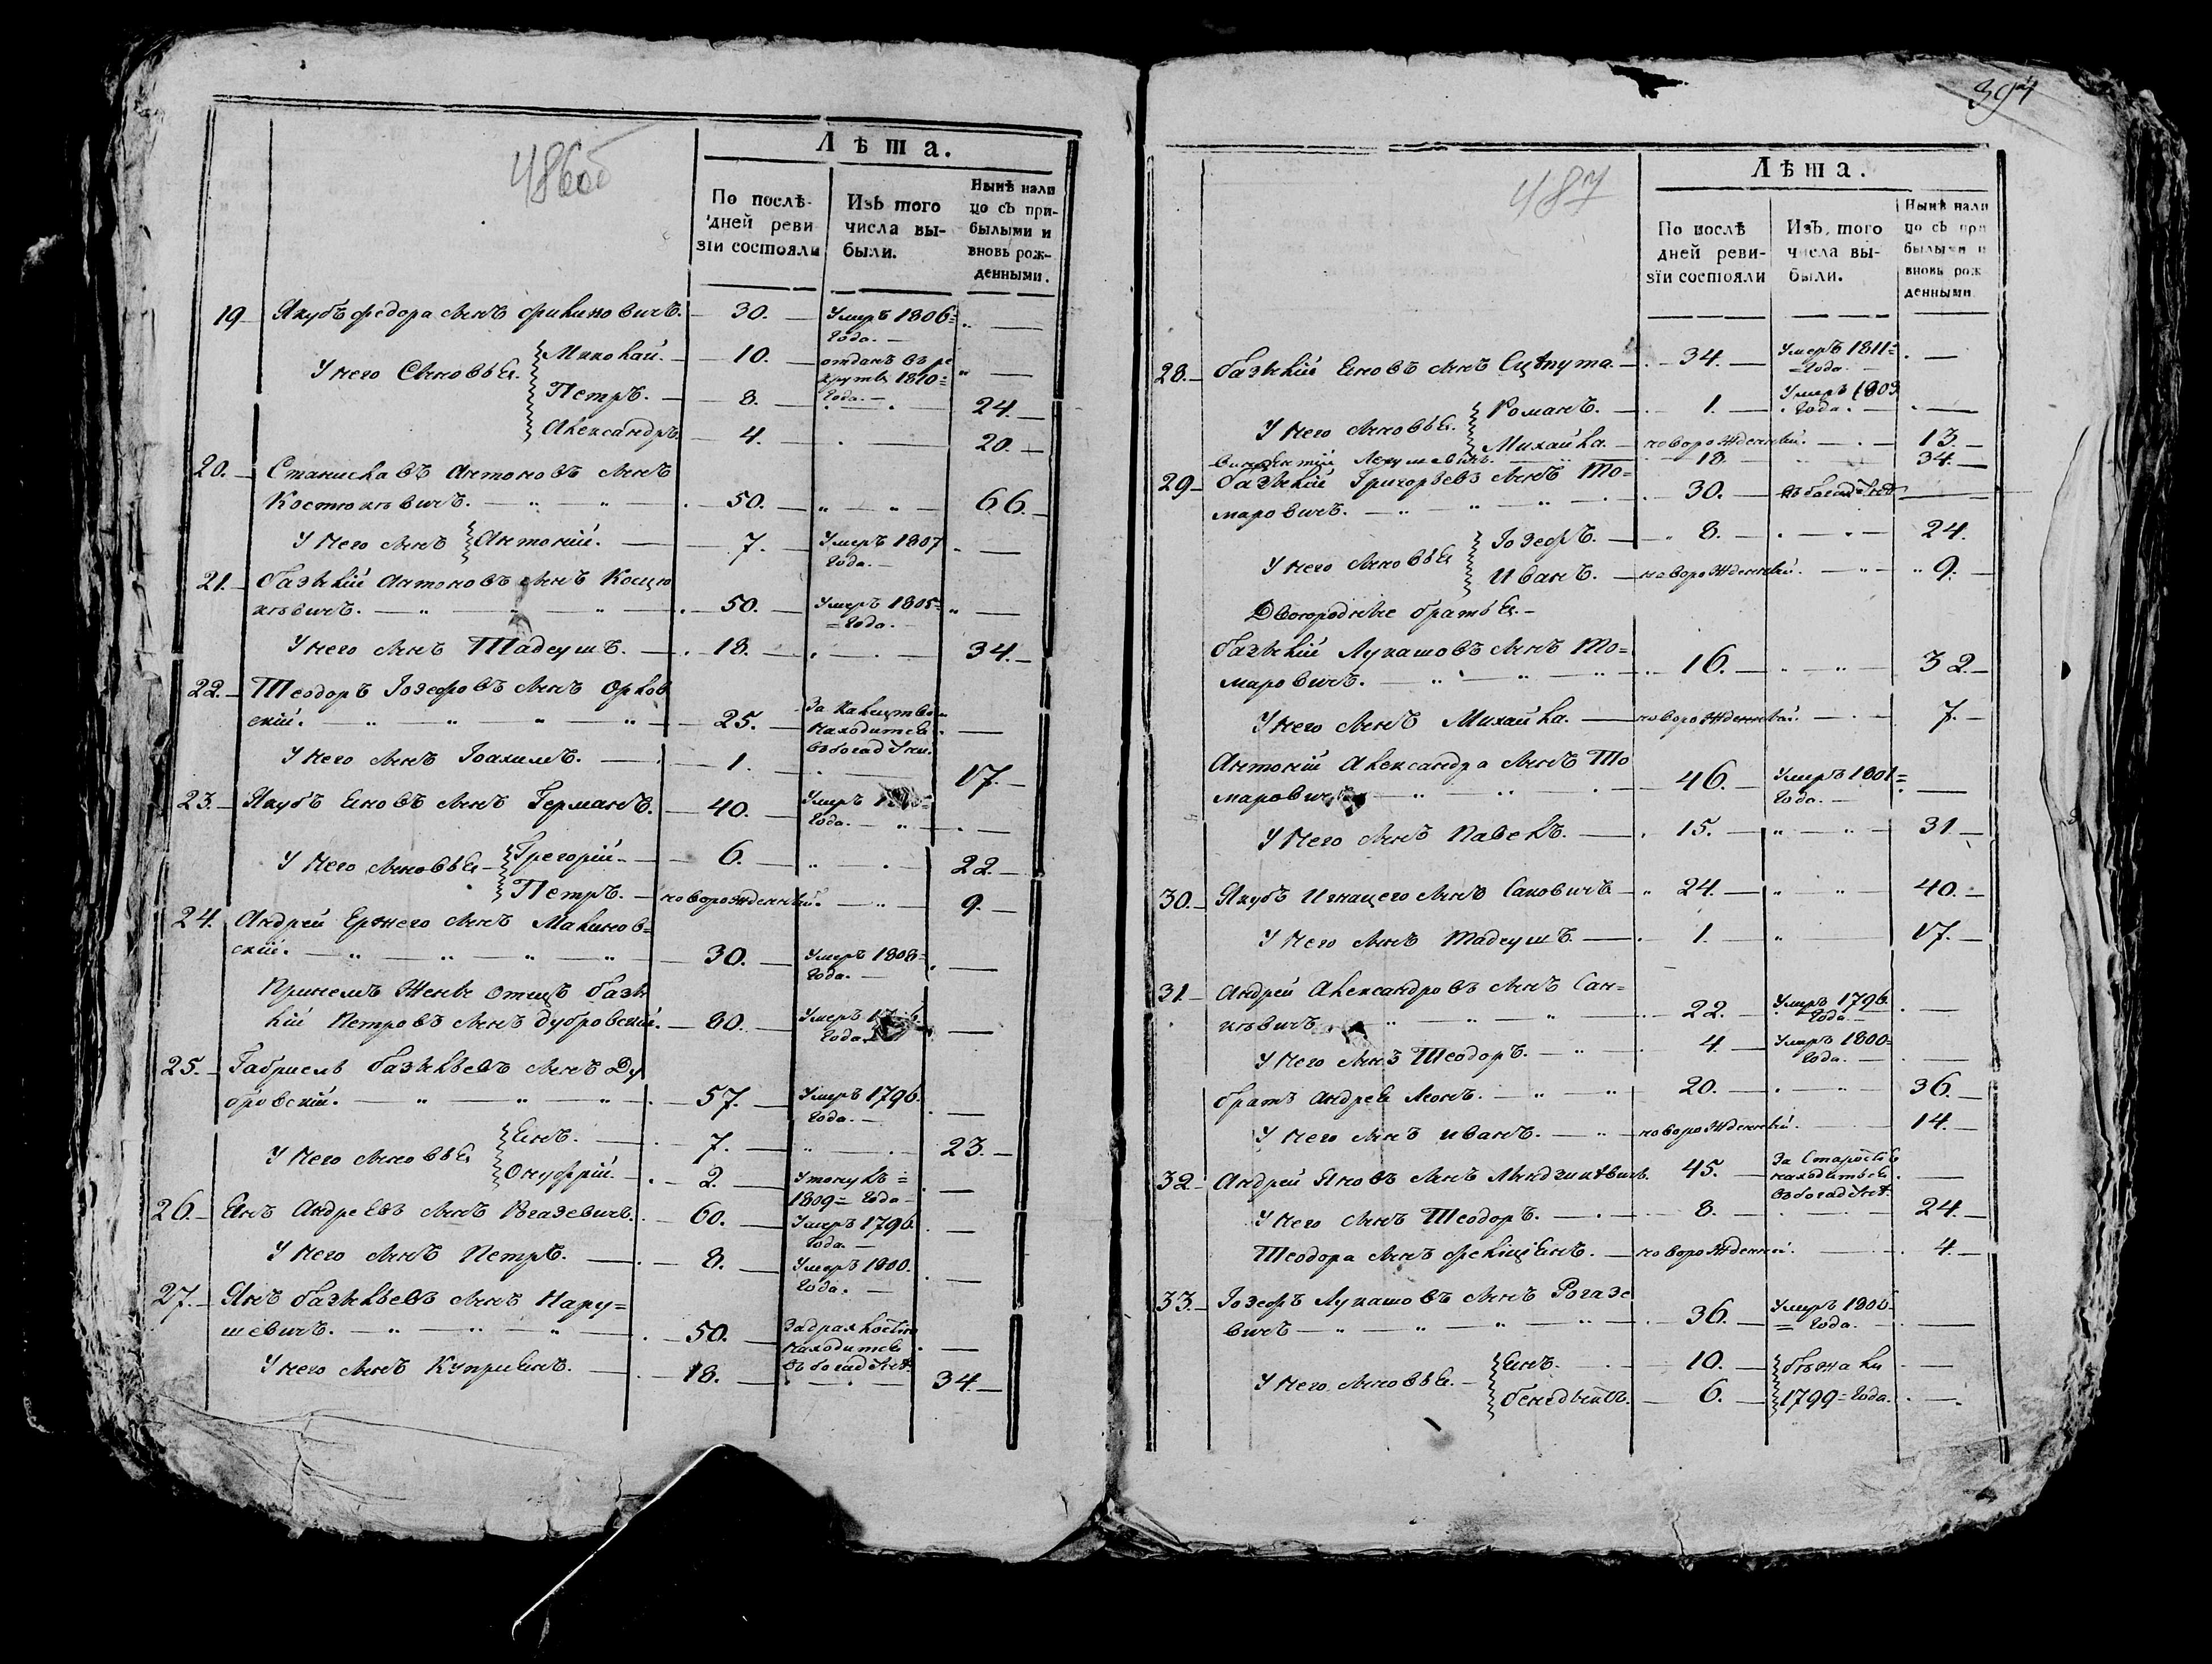 486об
Лѣта.
По послѣ-
дней реви
зіи состояли
Изъ того
числа вы-
были.
Нынѣ нали
цо съ при-
былыми и
вновь рож-
денными.
19 Якубъ Федора сынъ Филиновичъ. — 30. — Умеръ 1806=
Года. —
У него Сыновья. Миколай. — 10. — отданъ въ ре
круты 1810=
Года. —
Петръ. — 8. — 24. —
Александръ. 4. — 20. —
20. — Станиславъ Антоновъ сынъ
Костюкевичъ. — 50. — 66. —
У него сынъ Антоній. — 7. — Умеръ 1807
Года. —
21. — Базылій Антоновъ сынъ Косцю
кевичъ. — 50. — Умеръ 1805=
=Года. —
У него сынъ Тадеушъ. — 18. — 34. —
22. — Теодоръ Іозефовъ сынъ Орлов
скій. — 25. — За калицтвомъ
находится
въ богадѣлни.
У него сынъ Іоахимъ. — 1. — 17. —
23. — Якубъ Яновъ сынъ Германъ. — 40. — Умеръ
Года. —
У него сыновья Грегорій. — 6. — 22. —
Петръ. — новорожденный. — 9. —
24. Андрей Ержего сынъ Малинов=
скій. — 30. — Умеръ 1808=
Года. —
При немъ жены отецъ Базы
лій Петровъ сынъ Дубровскій. — 80. — Умеръ
Года.
25. — Габріель Базыльевъ сынъ Ду
бровскій. — 57. — Умеръ 1796.
Года. —
У него сыновья Янъ. — 7. — 23. —
Онуфрій. — 2. — Утонулъ =
1809= Года —
26. — Янъ Андреевъ сынъ Рогазевичъ. — 60. — Умеръ 1796.
Года. —
У него сынъ Петръ. — 8. — Умеръ 1800.
Года. —
27. — Янъ Базыльевъ сынъ Нару=
шевичъ. — 50. — За дряхлостію
находится
въ богадѣлнѣ.
У него сынъ Купріянъ. — 18. — 34. —
394
487
Лѣта.
По послѣ
дней реви-
зіи состояли
Изъ того
числа вы-
были.
Нынѣ нали
цо съ при
былыми и
вновь рож
денными
28. — Базылій Яновъ сынъ Сцѣпута — 34. — Умеръ 1811=
=Года. —
У него сыновья. Романъ. — 1. — Умеръ 1803
Года. —
Михайла. — новорожденный. — 13. —
Викентій 18. — 34. —
29 — Базылій Григорьевъ сынъ То=
маровичъ. — 30. — въ богадѣлнѣ —
У него сыновья Іозефъ. — 8. — 24.
Иванъ. — новорожденный. — 9. —
Двоюродные братья. —
Базылій Лукашовъ сынъ То=
маровичъ. — 16. — 32. —
У него сынъ Михайла. — новорожденный. — 7. —
Антоній Александра сынъ То
маровичъ — 46. — Умеръ 1801=
Года. —
У него сынъ Павелъ. — 15. — 31 —
30. — Якубъ Игнацего сынъ Саковичъ — 24. — 40. —
У него сынъ Тадеушъ. — 1. — 17. —
31 — Андрей Александровъ сынъ Сан=
кевичъ — 22. — Умеръ 1796.
Года. —
У него сынъ Теодоръ. — 4. — Умеръ 1800=
Года. —
братъ Андрея Леонъ. — 20. — 36. —
У него сынъ Иванъ. — новорожденный. — 14. —
32 — Андрей Яновъ сынъ 45. — За старостію
находиться
въ богадѣлнѣ.
У него сынъ Теодоръ. — 8. — 24. —
Теодора сынъ Феліціянъ. — новорожденный. — 4. —
33. — Іозефъ Лукашовъ сынъ Рогазе
вичъ — 36. — Умеръ 1806=
= Года. —
У него сыновья. — Янъ. — 10. — бѣжали
Бенедыктъ. — 6. — 1799= Года.